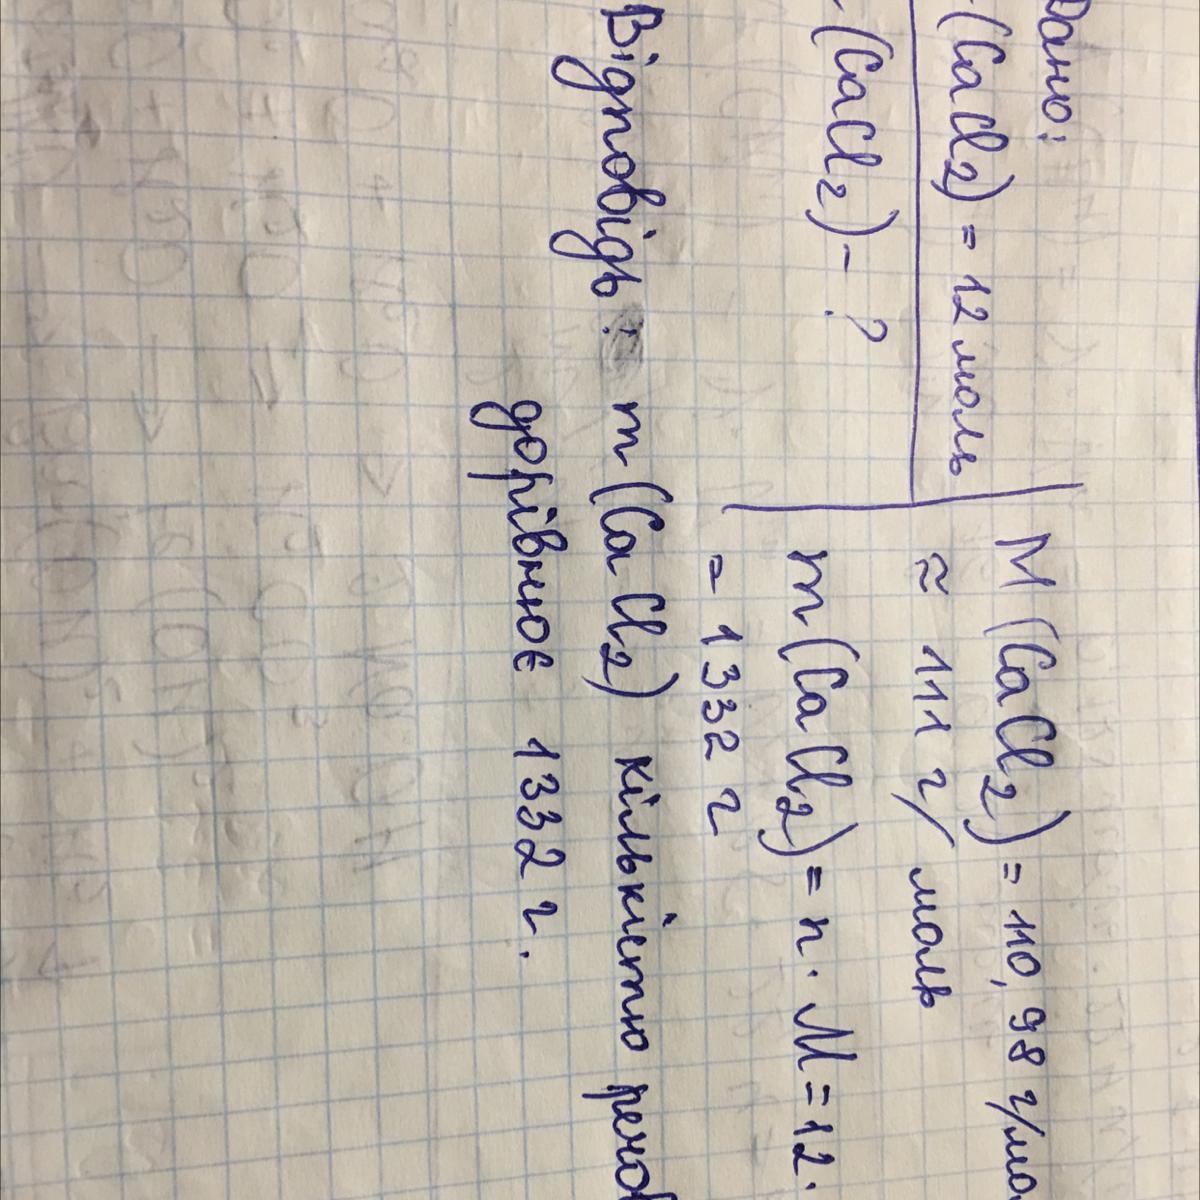 Дано:
(CaCl2) = 12 моль
(CaCl2) - ?
M (CaCl2) = 110,98 г/мо
≈ 111 г/моль
m (CaCl2) = n · M = 12 ·
= 1332 г
Відповідь: m (CaCl2) кількістю речов
дорівнює 1332 г.